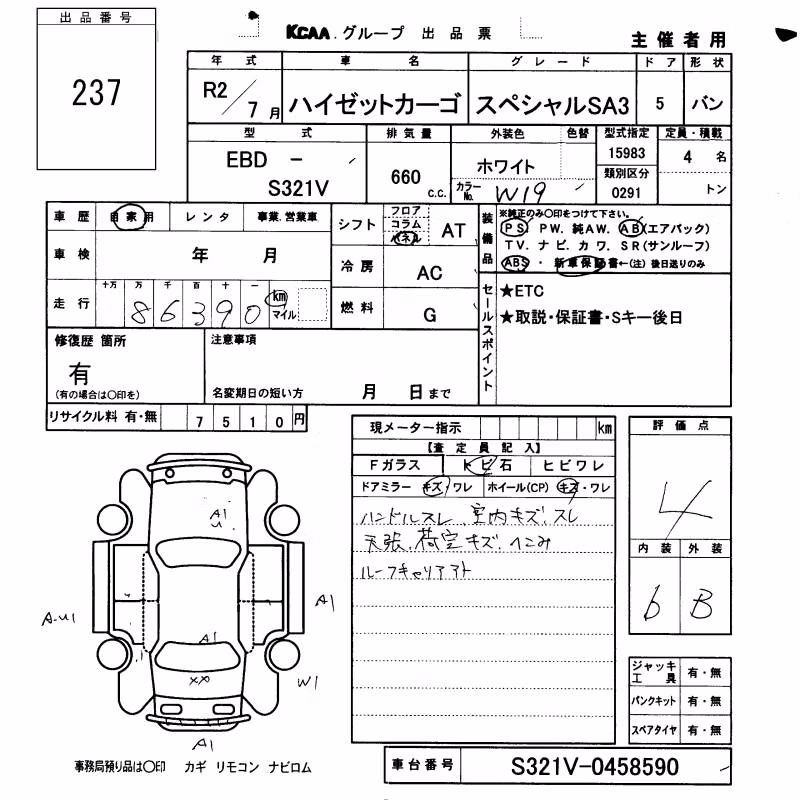 出品番号
237
KCAA.グループ 出品票
主催者用
年式 車名 グレード ドア 形状
R2/7月 ハイゼットカーゴ スペシャルSA3 5 バン
型式 排気量 外装色 色替 型式指定 定員・積載
EBD - S321V
660 c.c.
ホワイト
カラーNo. W19
15983
類別区分
0291
4 名
トン
車歴 自家用 レンタ 事業.営業車
車検 年 月
走行 十万 万 千 百 十 一
86390 km マイル
シフト フロア コラム パネル AT
冷房 AC
燃料 G
装備品
※純正のみ○印をつけて下さい。
PS PW. 純AW. AB(エアバック)
TV. ナビ. カワ. SR(サンルーフ)
ABS ・ 新車保証書←(注) 後日送りのみ
セールスポイント
★ETC
★取説・保証書・Sキー後日
修復歴 箇所
有
(有の場合は○印を)
注意事項
名変期日の短い方 月 日まで
リサイクル料 有・無 7510円
現メーター指示 km
【査定員記入】
Fガラス トビ石 ヒビワレ
ドアミラー キズ/ワレ ホイール(CP) キズ・ワレ
ハンドルスレ. 室内キズ.スレ
天張.荷室キズ.へこみ
ルーフキャリアアト
評価点
4
内装 外装
b B
ジャッキ工具 有・無
パンクキット 有・無
スペアタイヤ 有・無
A1
U
A-U1
A1
A1
XX
W1
A1
事務局預り品は○印 カギ リモコン ナビロム
車台番号 S321V-0458590